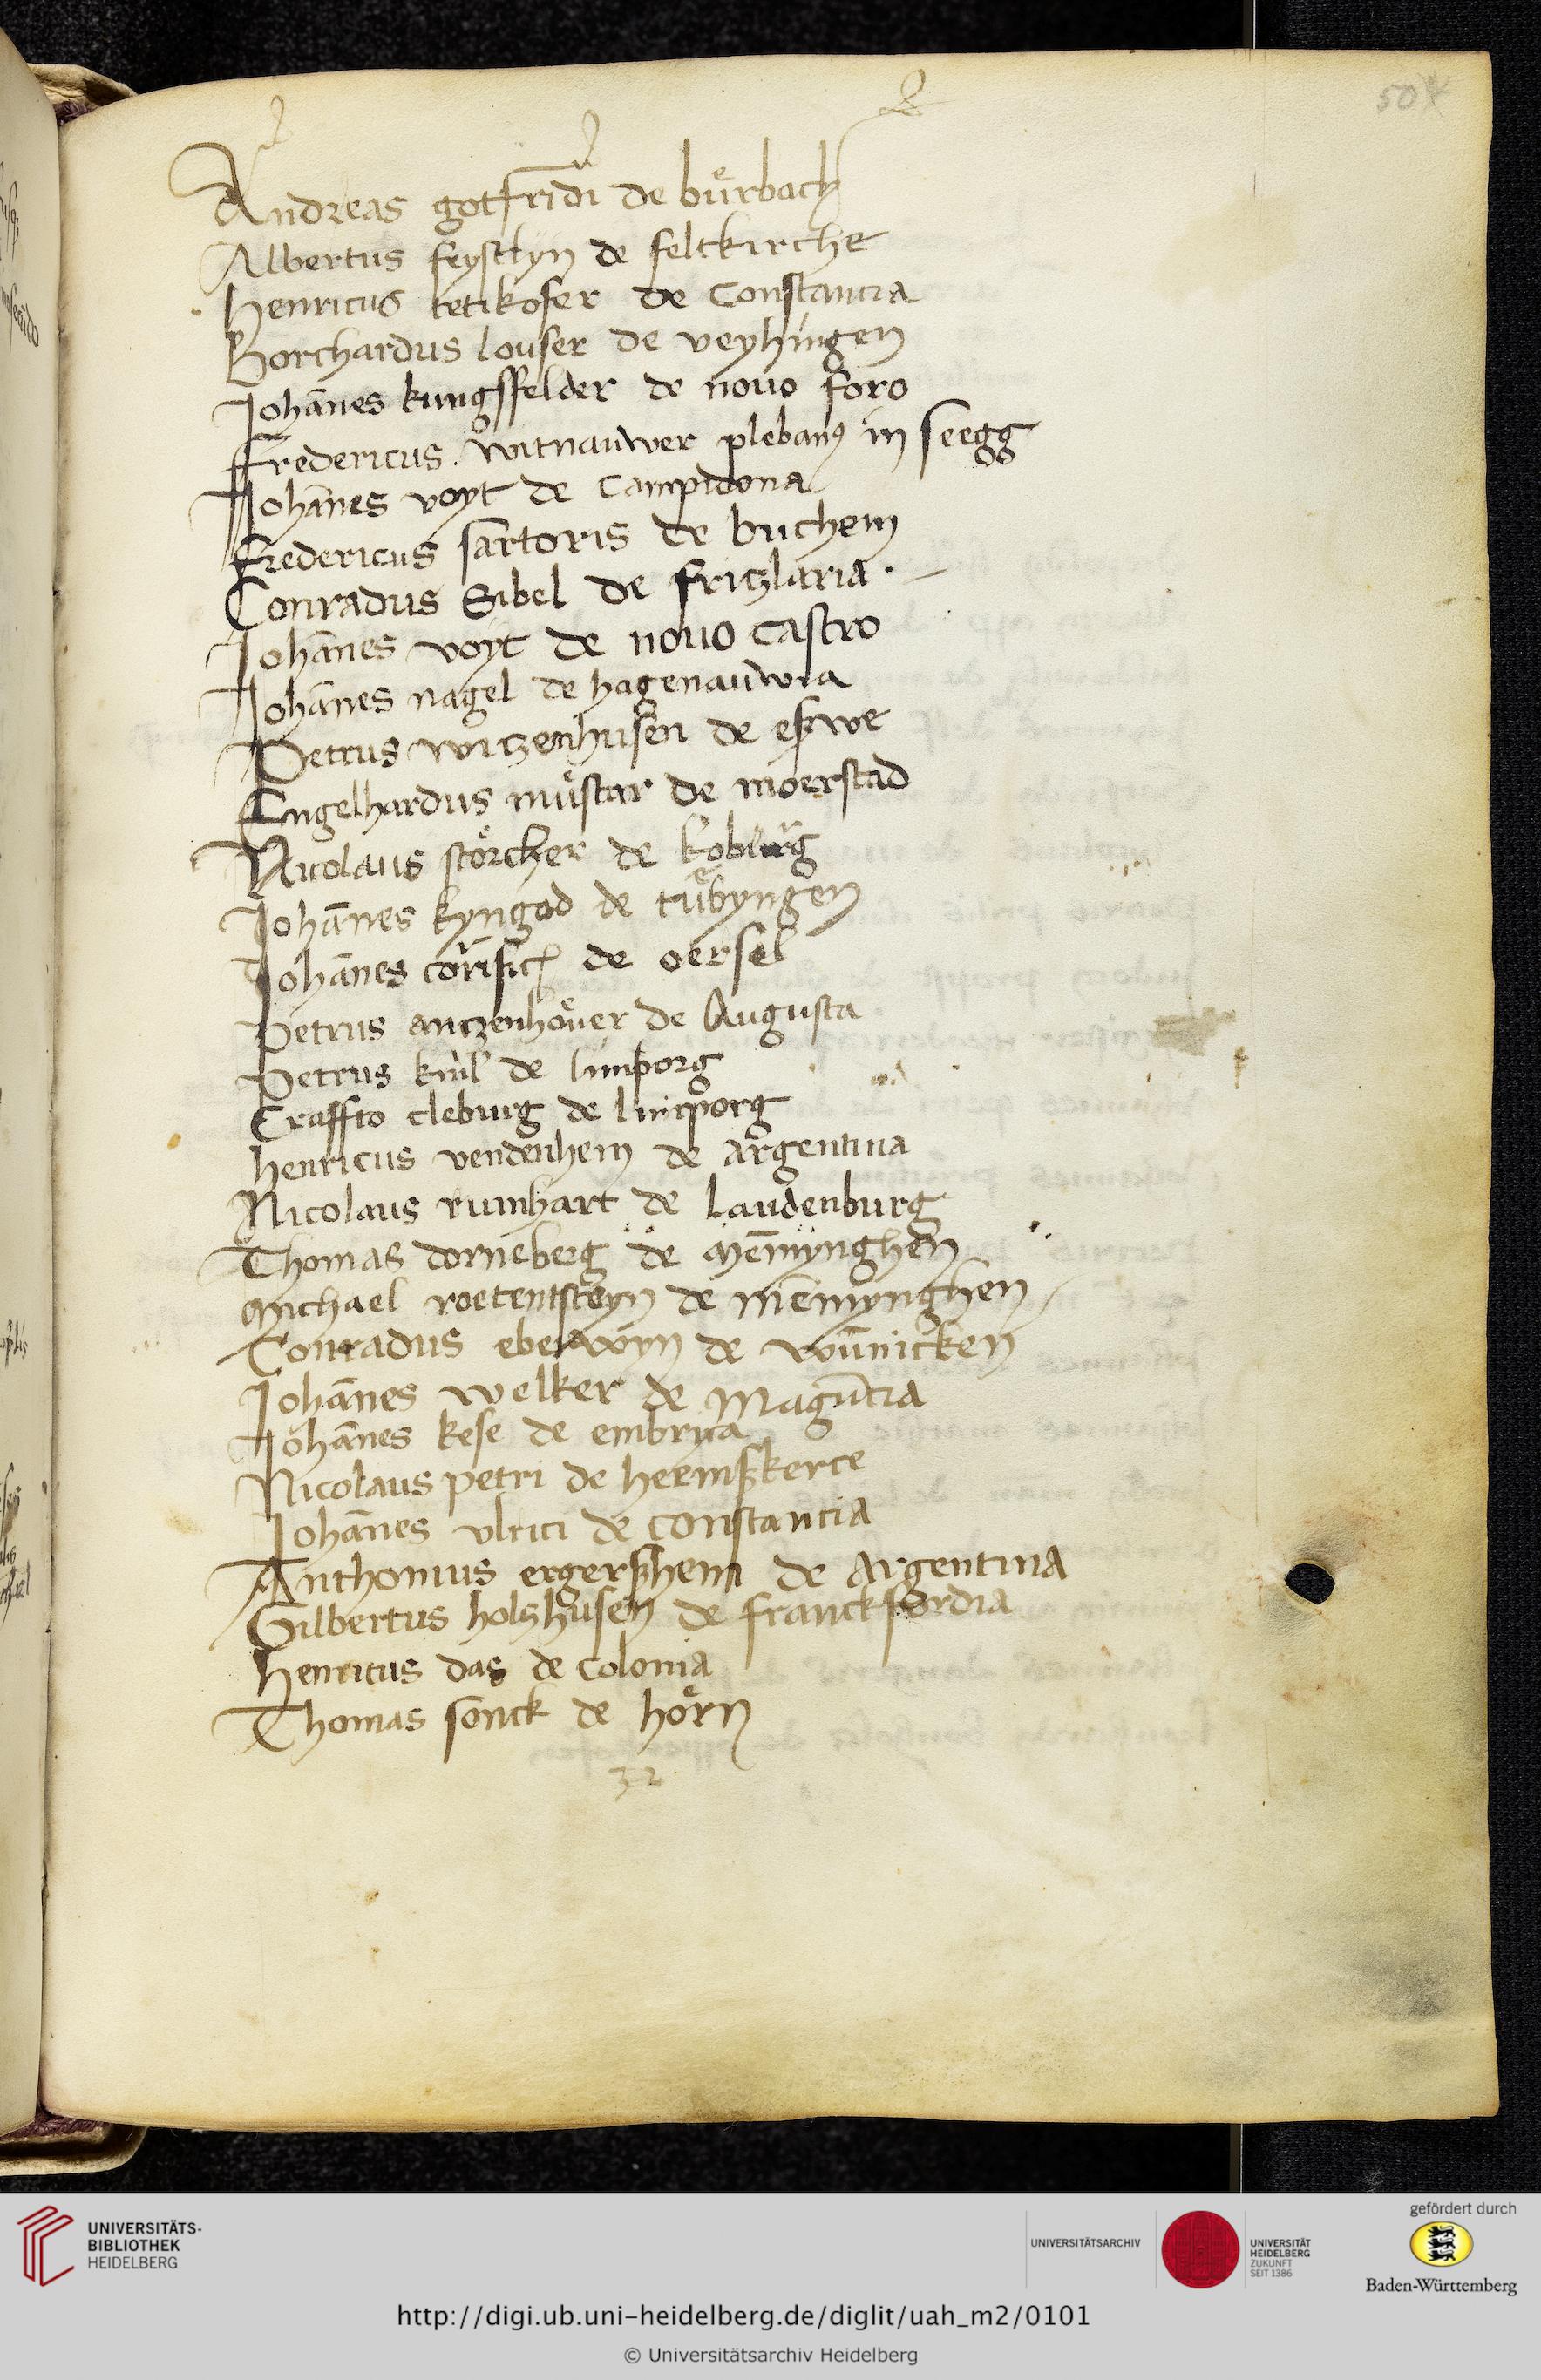 50
Andreas gotfridi de bu̍rbach
Albertus feystlyn de feltkirche
henricus tetikofer de Constancia
Borchardus louser de veyhingen
Johānes kungsfelder de nouo foro
Fredericus witnauwer plebanꝰ in seegg
Johānes voyt de Campidona
Fredericus sartoris de buchem
Conradus Sibel de fritzlaria
Johānes voyt de nouo castro
Johānes nagel de hagenauwia
Petrus witzenhusen de eschwe
Engelhardus můstar de moerstad
Nicolaus störcher de koburg
Johānes kyngod de tůbyngen
Johānes de oersel
Petrus antzenhöuer de Augusta
Petrus de limporg
Craffto cleburg de limporg
henricus vendenhem de argentina
Nicolaus rumhart de laudenburg
Thomas dorneberg de mēmynghen
Michael roetentsteyn de mēmynghen
Conradus eberwyn de wūnicken
Johānes welker de Magūcia
Johānes kese de embrica
Nicolaus petri de heemskerce
Johānes vlrici de constancia
Anthonius ergerszhem de Argentina
Gilbertus holzhusen de franckfordia
Henricus das de Colonia
Thomas sonck de hörn
32
UNIVERSITÄTS-
BIBLIOTHEK
HEIDELBERG
UNIVERSITÄTSARCHIV
UNIVERSITÄT
HEIDELBERG
ZUKUNFT
SEIT 1386
gefördert durch
Baden-Württemberg
http://digi.ub.uni-heidelberg.de/diglit/uah_m2/0101
© Universitätsarchiv Heidelberg